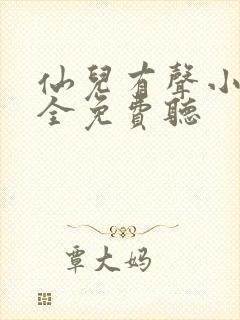 仙兒有聲小
全免費聽
覃大妈